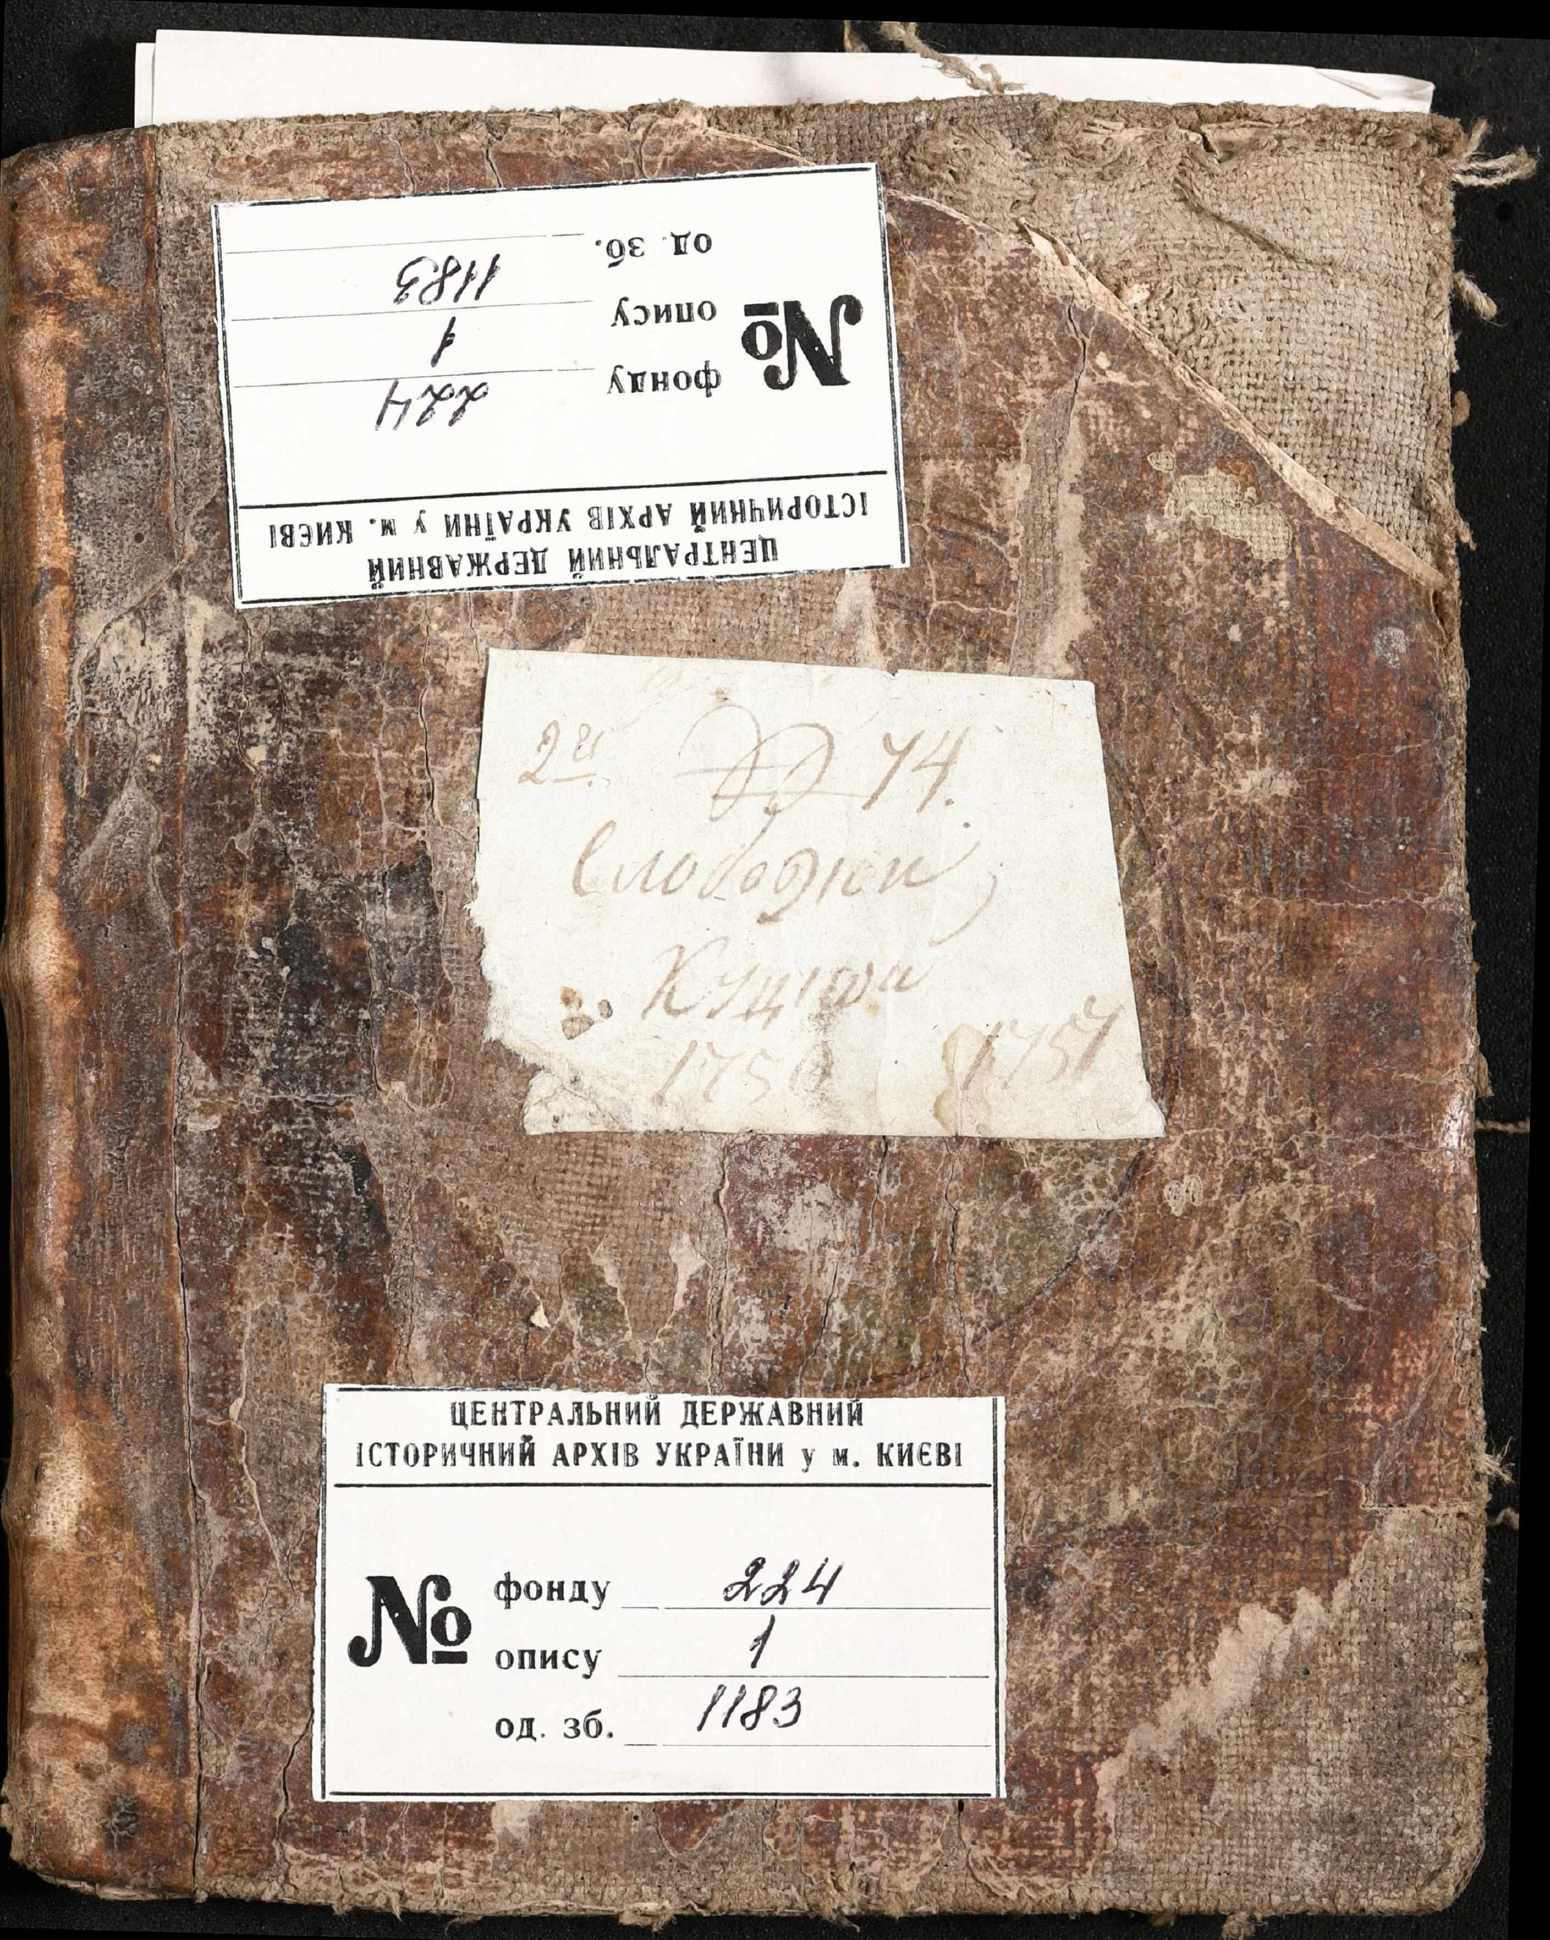 од. зб. 1183
опису 1
фонду 224
№
ЦЕНТРАЛЬНИЙ ДЕРЖАВНИЙ
ІСТОРИЧНИЙ АРХІВ УКРАЇНИ у м. КИЄВІ
74.
Слободки
1757
ЦЕНТРАЛЬНИЙ ДЕРЖАВНИЙ
ІСТОРИЧНИЙ АРХІВ УКРАЇНИ у м. КИЄВІ
№
фонду 224
опису 1
од. зб. 1183